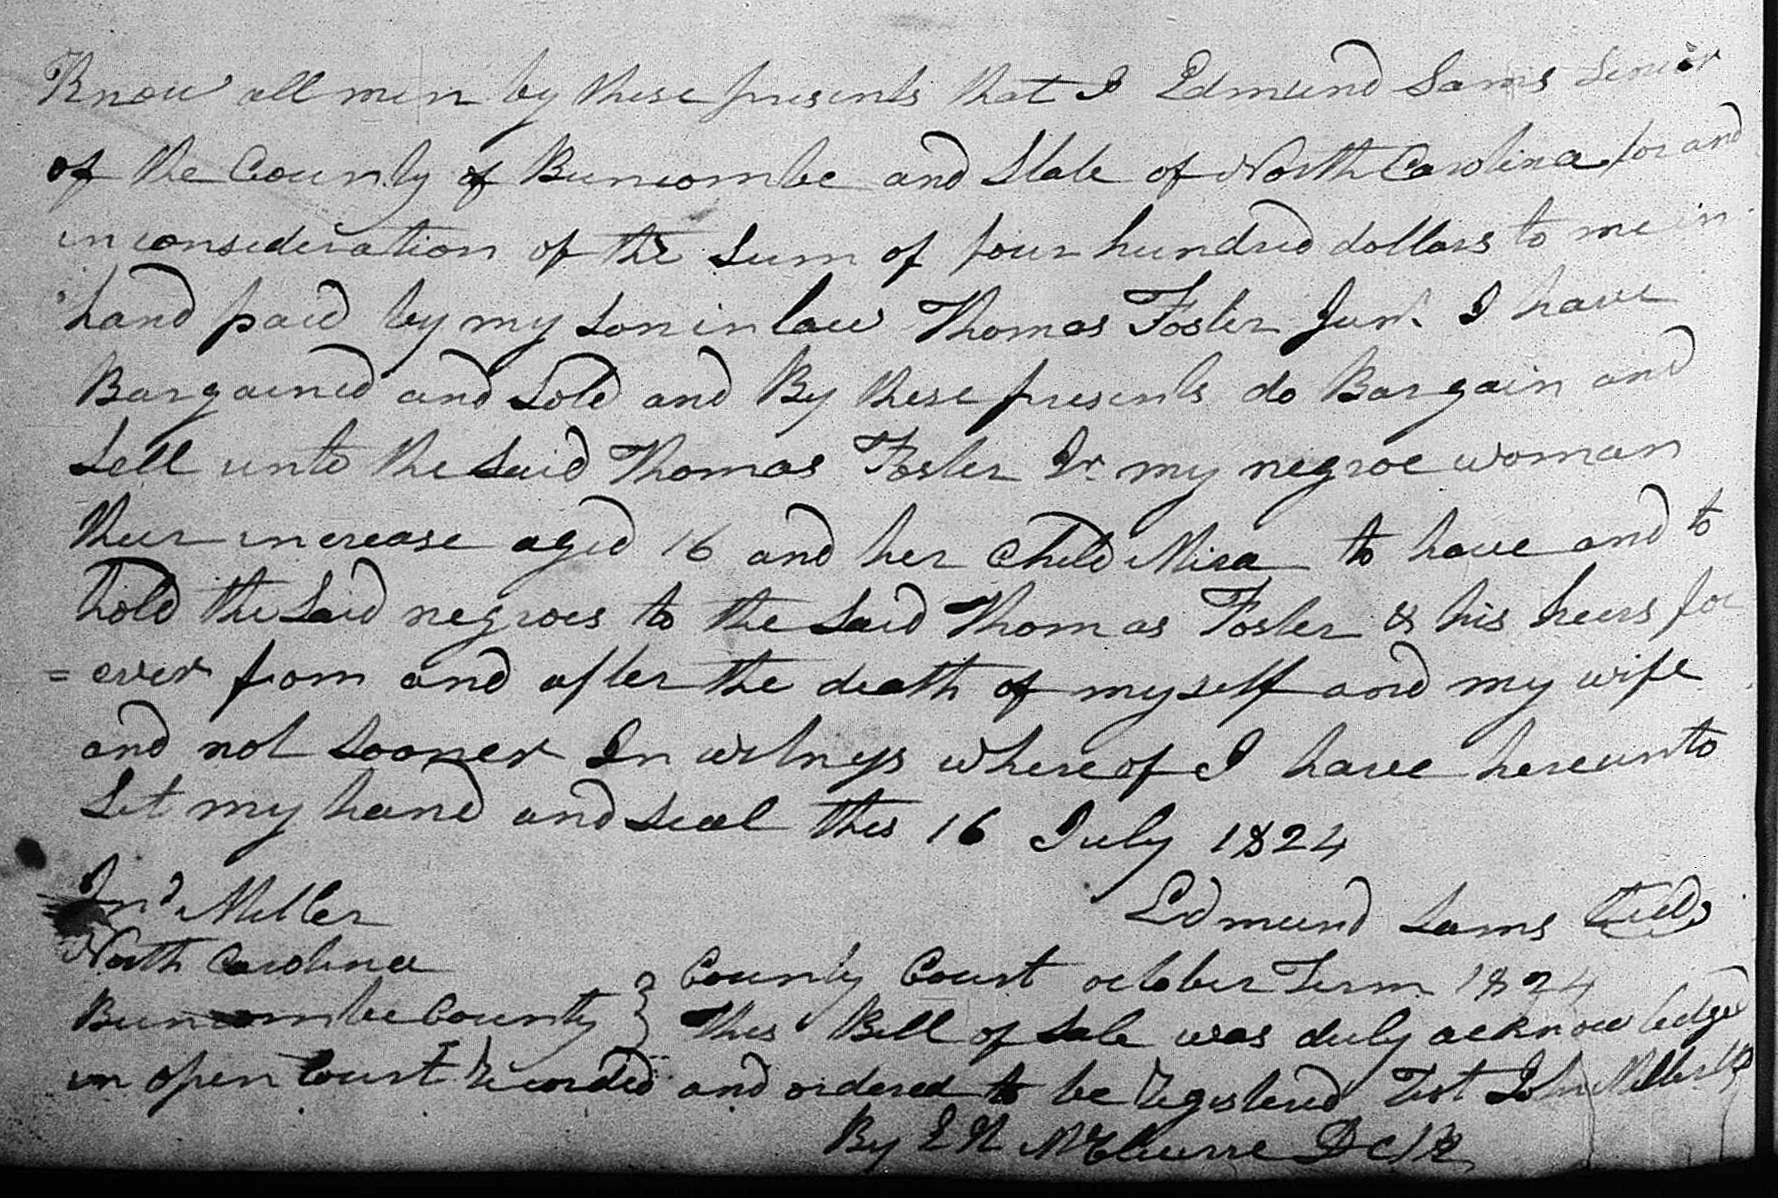 Know all men by these presents that I Edmund Sams Senior
of the County of Buncombe and State of North Carolina for and
in consideration of the Sum of four hundred dollars to me in
hand paid by my son in law Thomas Foster Junr. I have
Bargained and Sold and By these presents do Bargain and
Sell unto the Said Thomas Foster Jr my negroe woman
their increase aged 16 and her Child Mira to have and to
hold the Said negroes to the Said Thomas Foster & his heirs for
= ever from and after the death of myself and my wife
and not sooner In witness whereof I have hereunto
Set my hand and seal this 16 July 1824
Jno Miller
Edmund Sams Seal
North Carolina
Buncombe County } County Court october Term 1824
This Bill of Sale was duly acknowledged
in open Court Recorded and ordered to be Registered Test John Miller
By